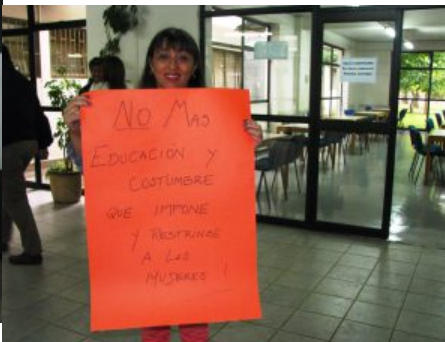 NO MAS
EDUCACION Y
COSTUMBRE
QUE IMPONE
Y RESTRINGE
A LAS
MUJERES!